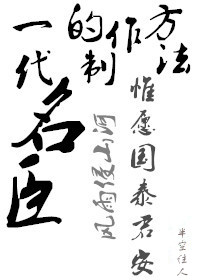 一代
名臣
的制作
方法
风雨侵山河
惟愿国泰君安
半空佳人